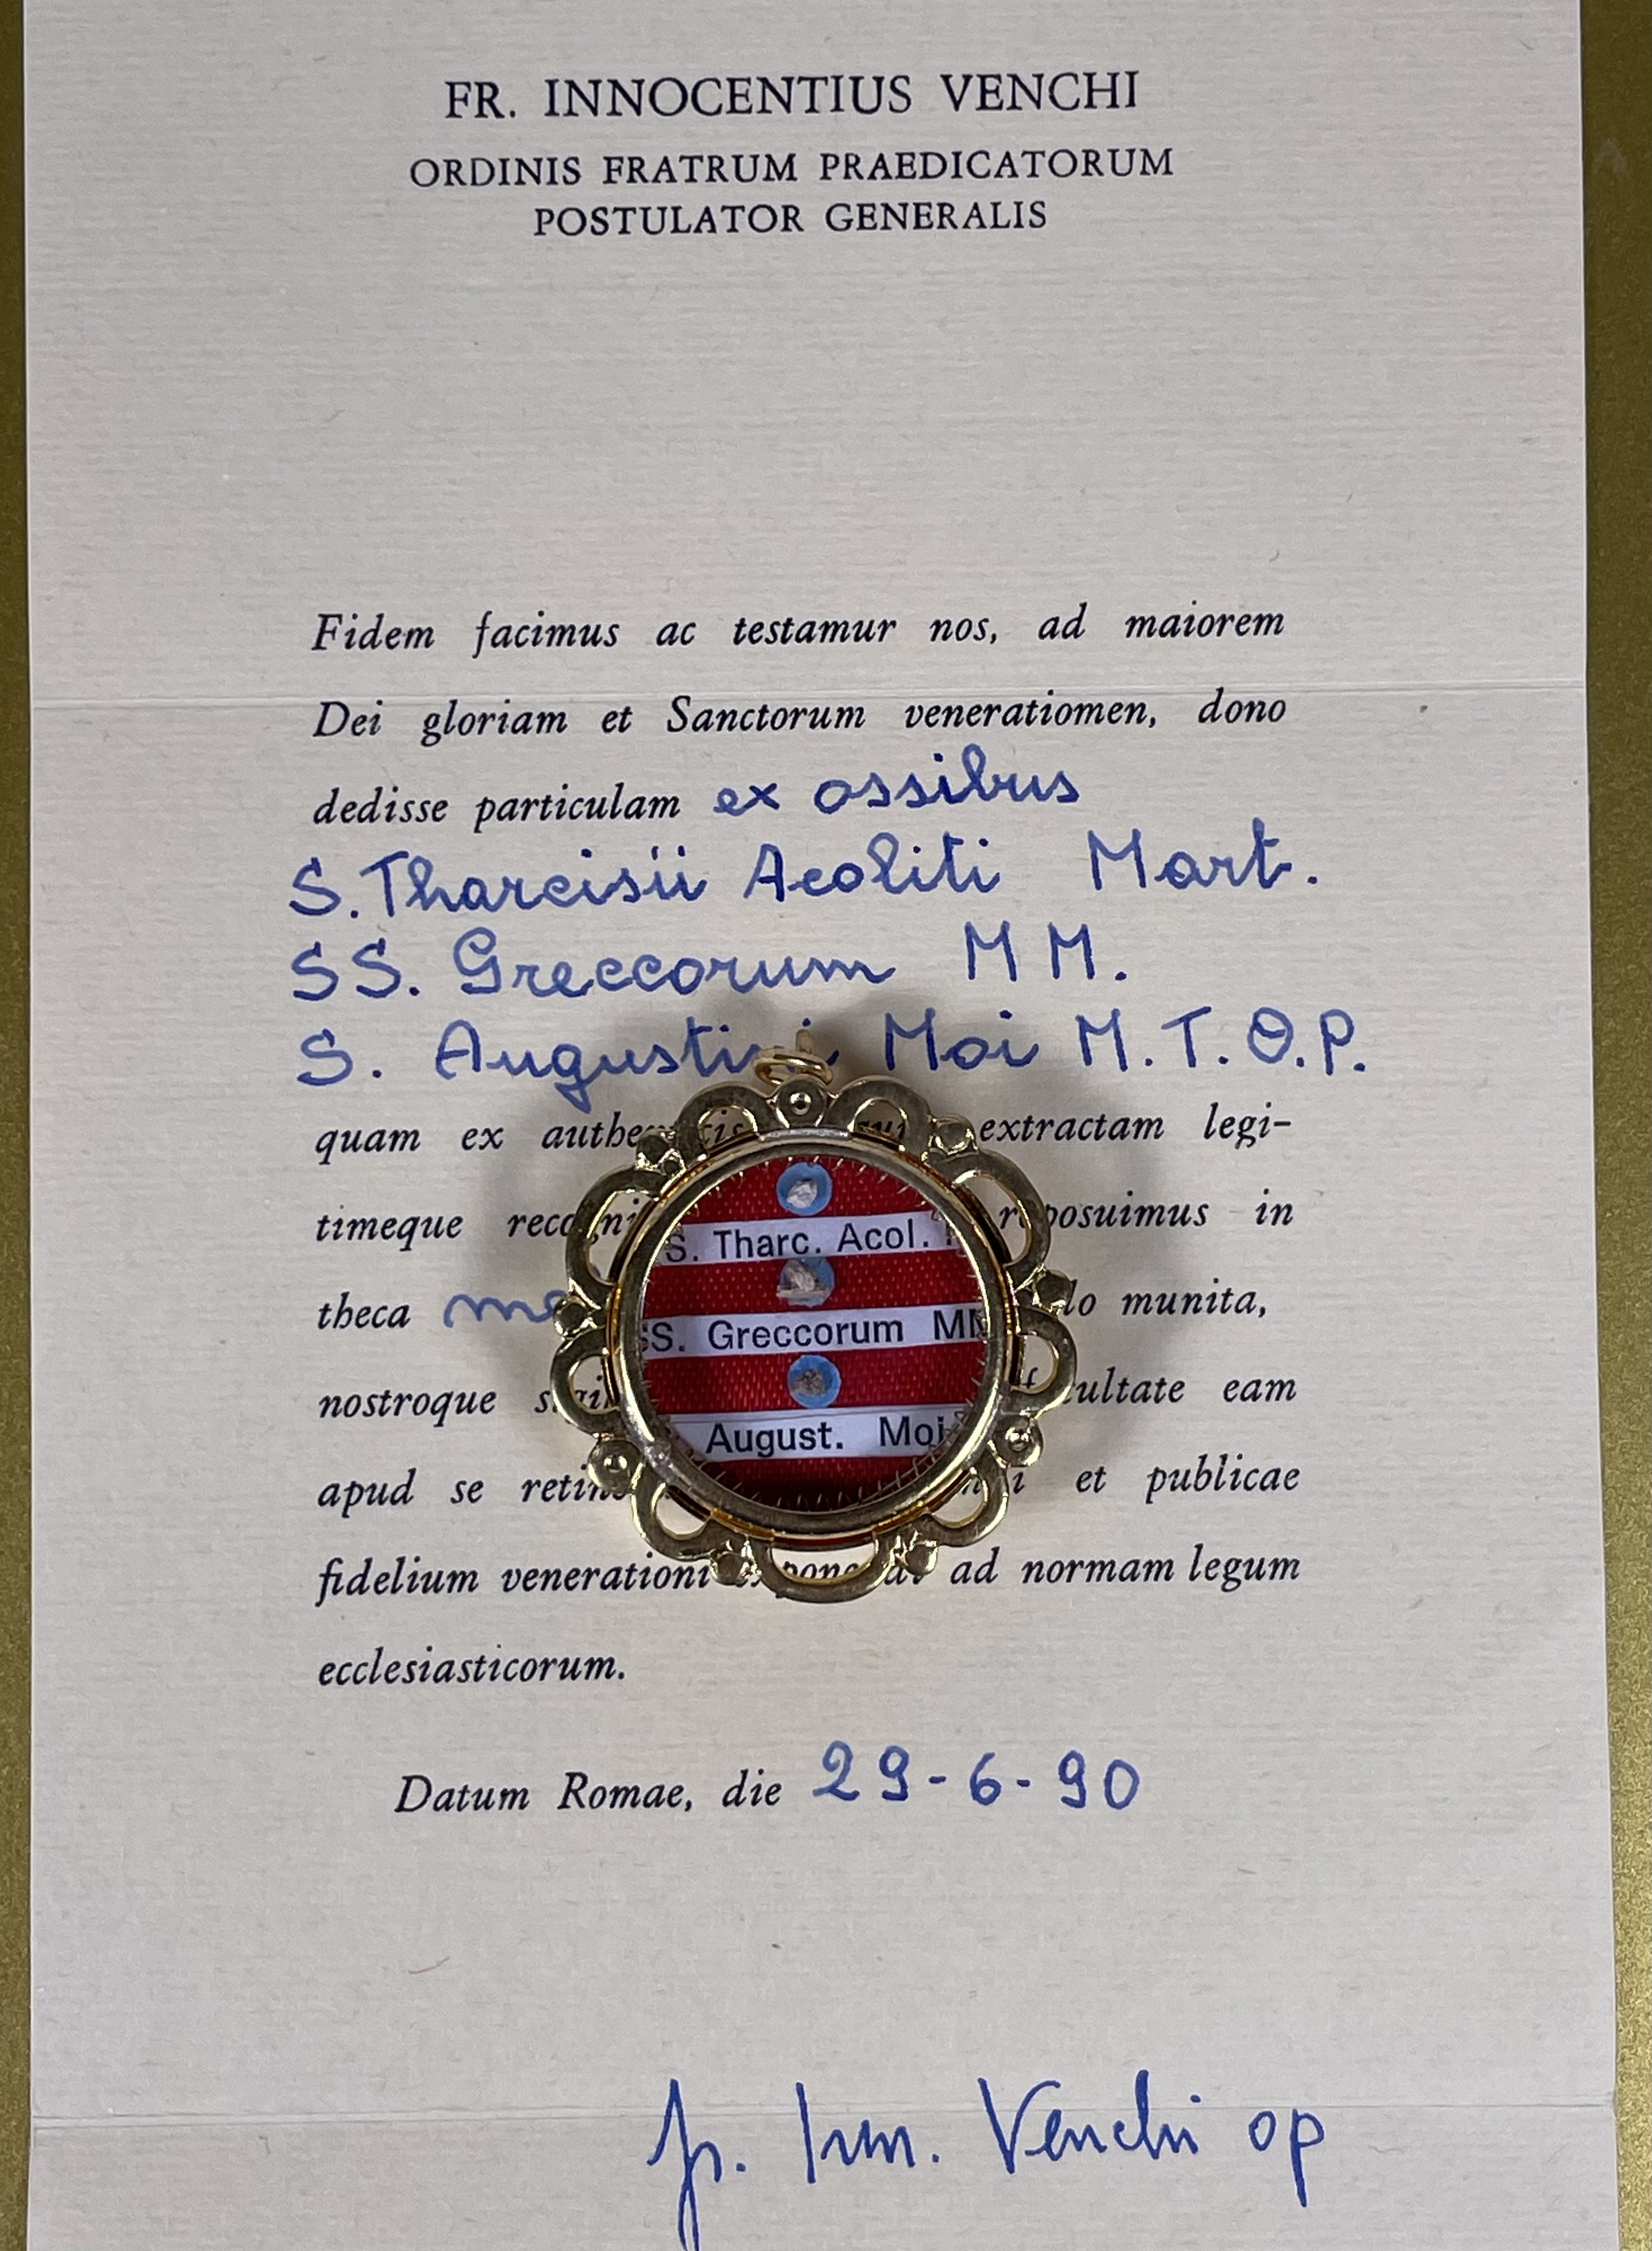 FR. INNOCENTIUS VENCHI
ORDINIS FRATRUM PRAEDICATORUM
POSTULATOR GENERALIS
Fidem facimus ac testamur nos, ad maiorem
Dei gloriam et Sanctorum veneratiomen, dono
dedisse particulam ex ossibus
S. Tharcisii Acoliti Mart.
SS. Greccorum M M.
S. Augustini Moi M. T. O. P.
quam ex extractam legi-
timeque reposuimus in
theca munita,
nostroque eam
apud se et publicae
fidelium venerationi ad normam legum
ecclesiasticorum.
S. Tharc. Acol.
SS. Greccorum MM
August. Moi
Datum Romae, die 29-6-90
fr. Inn. Venchi op